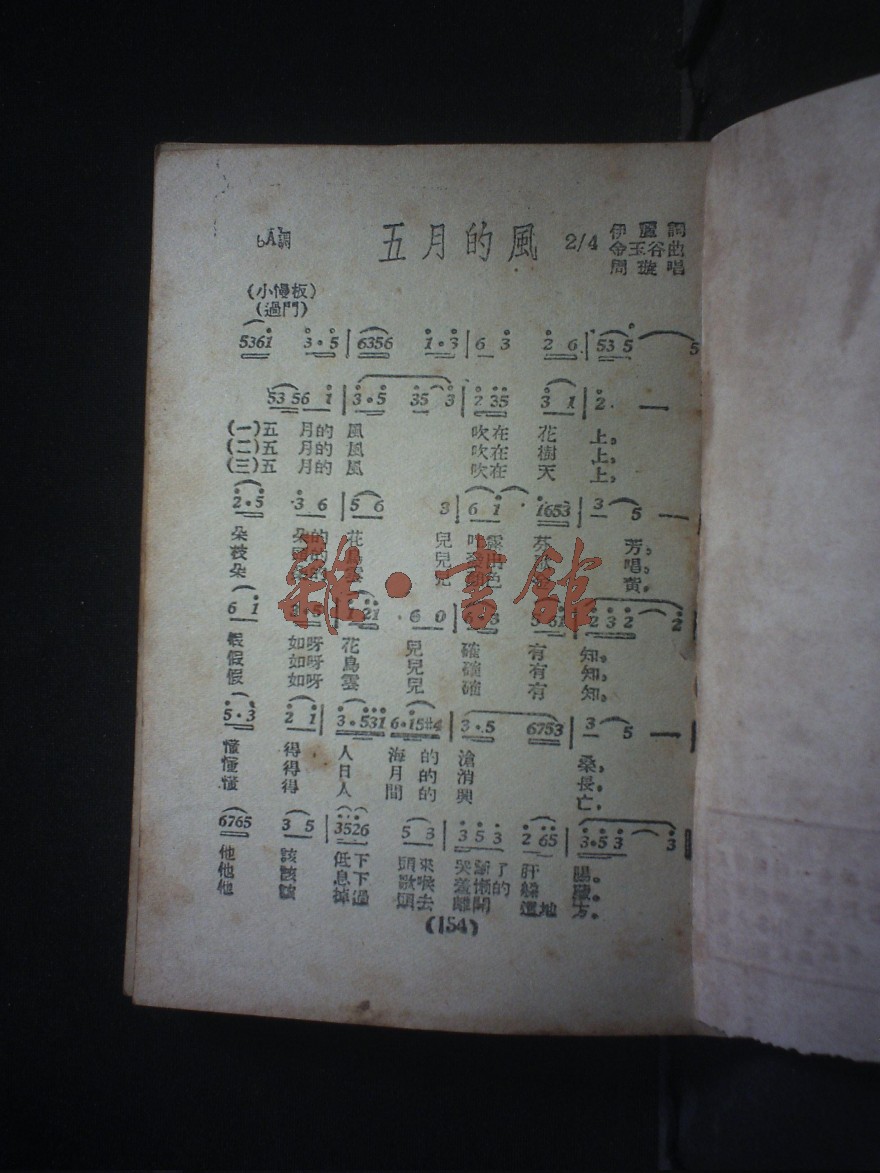 bA調 五月的風 2/4 伊 詞
金玉谷曲
周璇唱
(小慢板)
(過門)
5361 3·5 | 6356 1·3 | 6 3 2 6 | 53 5 — 5
53 56 1 | 3·5 35 3 | 2 35 3 1 | 2 —
(一)五 月的 風 吹在 花 上，
(二)五 月的 風 吹在 樹 上，
(三)五 月的 風 吹在 天 上，
2·5 3 6 | 5 6 3 | 6 1 1653 | 3 5 —
朵 朵的 花 兒 吐露 芬 芳，
枝 的 鳥 兒 唱，
朵 的 雲 兒 色 黃，
雜·書館
6 1 | 1 21 6 0 | 3 | 2 3 2 2
假 如呀 花 兒 確 有 知，
假 如呀 鳥 兒 確 有 知，
假 如呀 雲 兒 確 有 知，
5·3 2 1 | 3·531 6·15#4 | 3·5 6753 | 3 5 —
懂 得 人 海 的 滄 桑，
懂 得 日 月 的 消 長，
懂 得 人 間 的 興 亡，
6765 3 5 | 3526 5 3 | 3 5 3 2 65 | 3·5 3 3
他 該 低下 頭來 哭 了 肝 腸。
他 該 息下 歌喉 羞慚的
他 該 掉過 頭去 離開 這地 方。
(154)